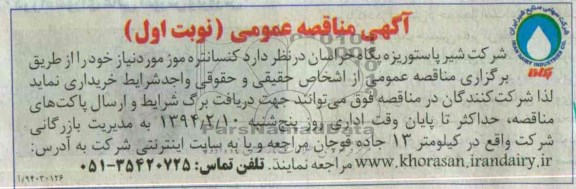 آگهی مناقصه عمومی (نوبت اول)
شرکت شیر پاستوریزه پگاه خراسان در نظر دارد کنسانتره موز مورد نیاز خود را از طریق
برگزاری مناقصه عمومی از اشخاص حقیقی و حقوقی واجد شرایط خریداری نماید
لذا شرکت کنندگان در مناقصه فوق می‌توانند جهت دریافت برگ شرایط و ارسال پاکت‌های
مناقصه، حداکثر تا پایان وقت اداری روز پنج‌شنبه ۱۳۹۴/۲/۱۰ به مدیریت بازرگانی
شرکت واقع در کیلومتر ۱۳ جاده قوچان مراجعه و یا به سایت اینترنتی شرکت به آدرس:
www.khorasan.irandairy.ir مراجعه نمایند. تلفن تماس: ۳۵۴۲۰۷۲۵-۰۵۱
شرکت سهامی صنایع شیر ایران
IRAN DAIRY INDUSTRIES CO.
پگاه
ParsNamadData
۱/۹۴۰۳۰۱۲۶